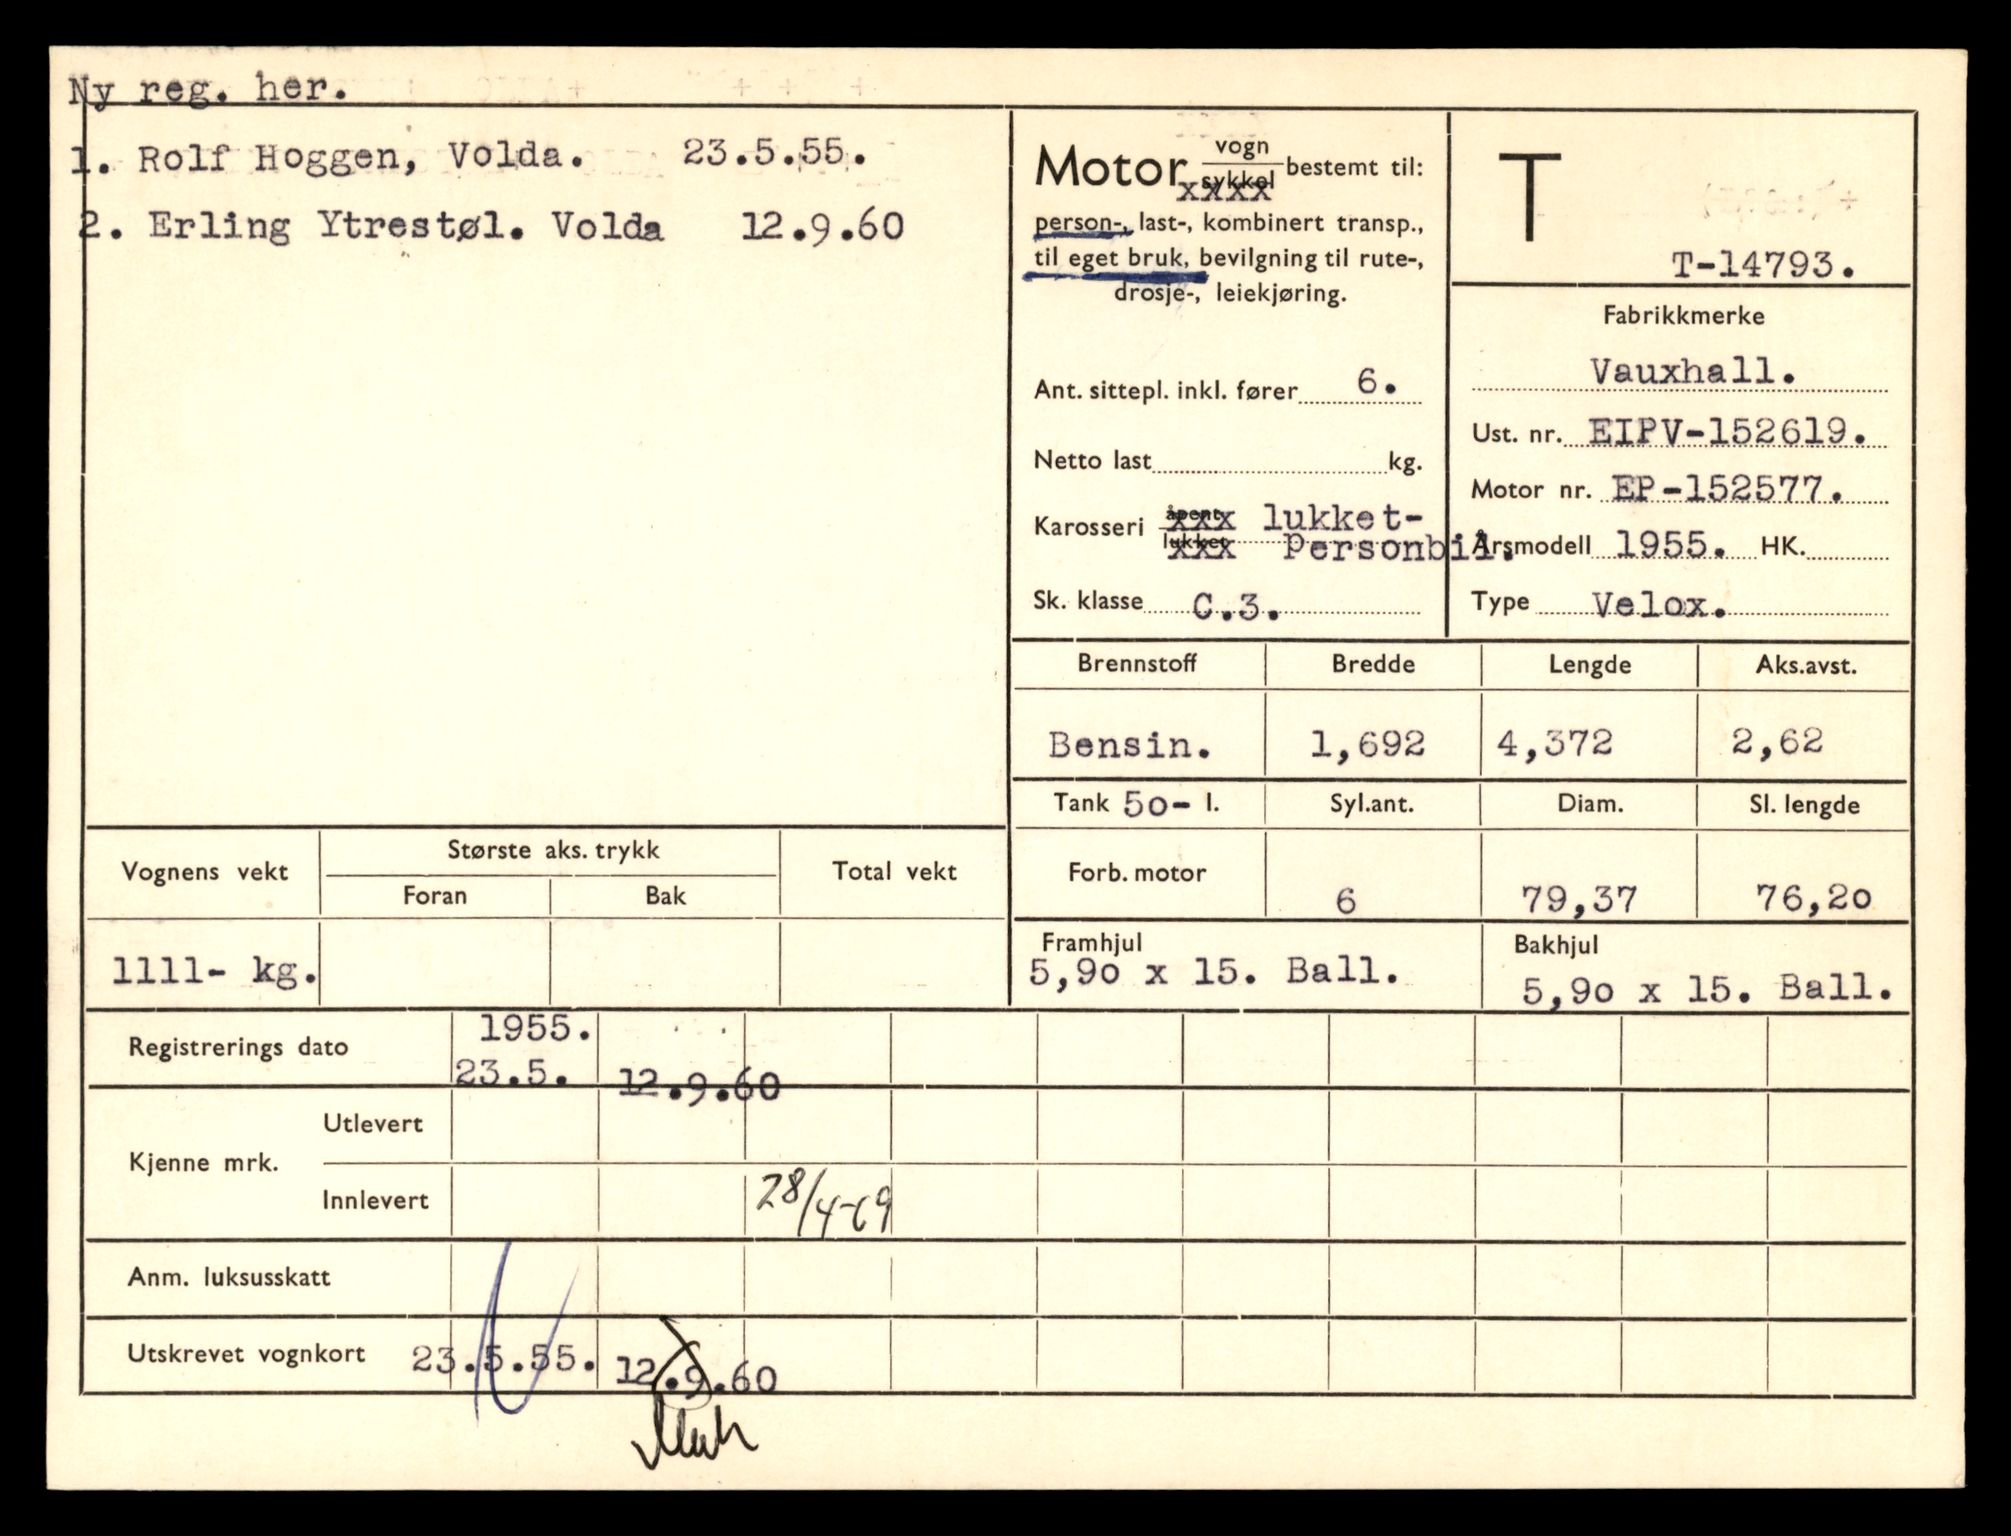 Ny reg. her.
1. Rolf Hoggen, Volda. 23.5.55.
2. Erling Ytrestøl. Volda 12.9.60
Motor vogn bestemt til:
sykkel
xxxx
person-, last-, kombinert transp.,
til eget bruk, bevilgning til rute-,
drosje-, leiekjøring.
Ant. sittepl. inkl. fører 6.
Netto last kg.
Karosseri åpent xxx lukket-
lukket xxx Personbil.
Sk. klasse C.3.
T
T-14793.
Fabrikkmerke
Vauxhall.
Ust. nr. EIPV-152619.
Motor nr. EP-152577.
Årsmodell 1955. HK.
Type Velox.
Brennstoff Bredde Lengde Aks.avst.
Bensin. 1,692 4,372 2,62
Tank 50- l. Syl.ant. Diam. Sl. lengde
Forb. motor 6 79,37 76,20
Framhjul Bakhjul
5,90 x 15. Ball. 5,90 x 15. Ball.
Vognens vekt Største aks. trykk Total vekt
Foran Bak
1111- kg.
Registrerings dato 1955.
23.5. 12.9.60
Kjenne mrk. Utlevert
Innlevert 28/4-69
Anm. luksusskatt
Utskrevet vognkort 23.5.55. 12.9.60